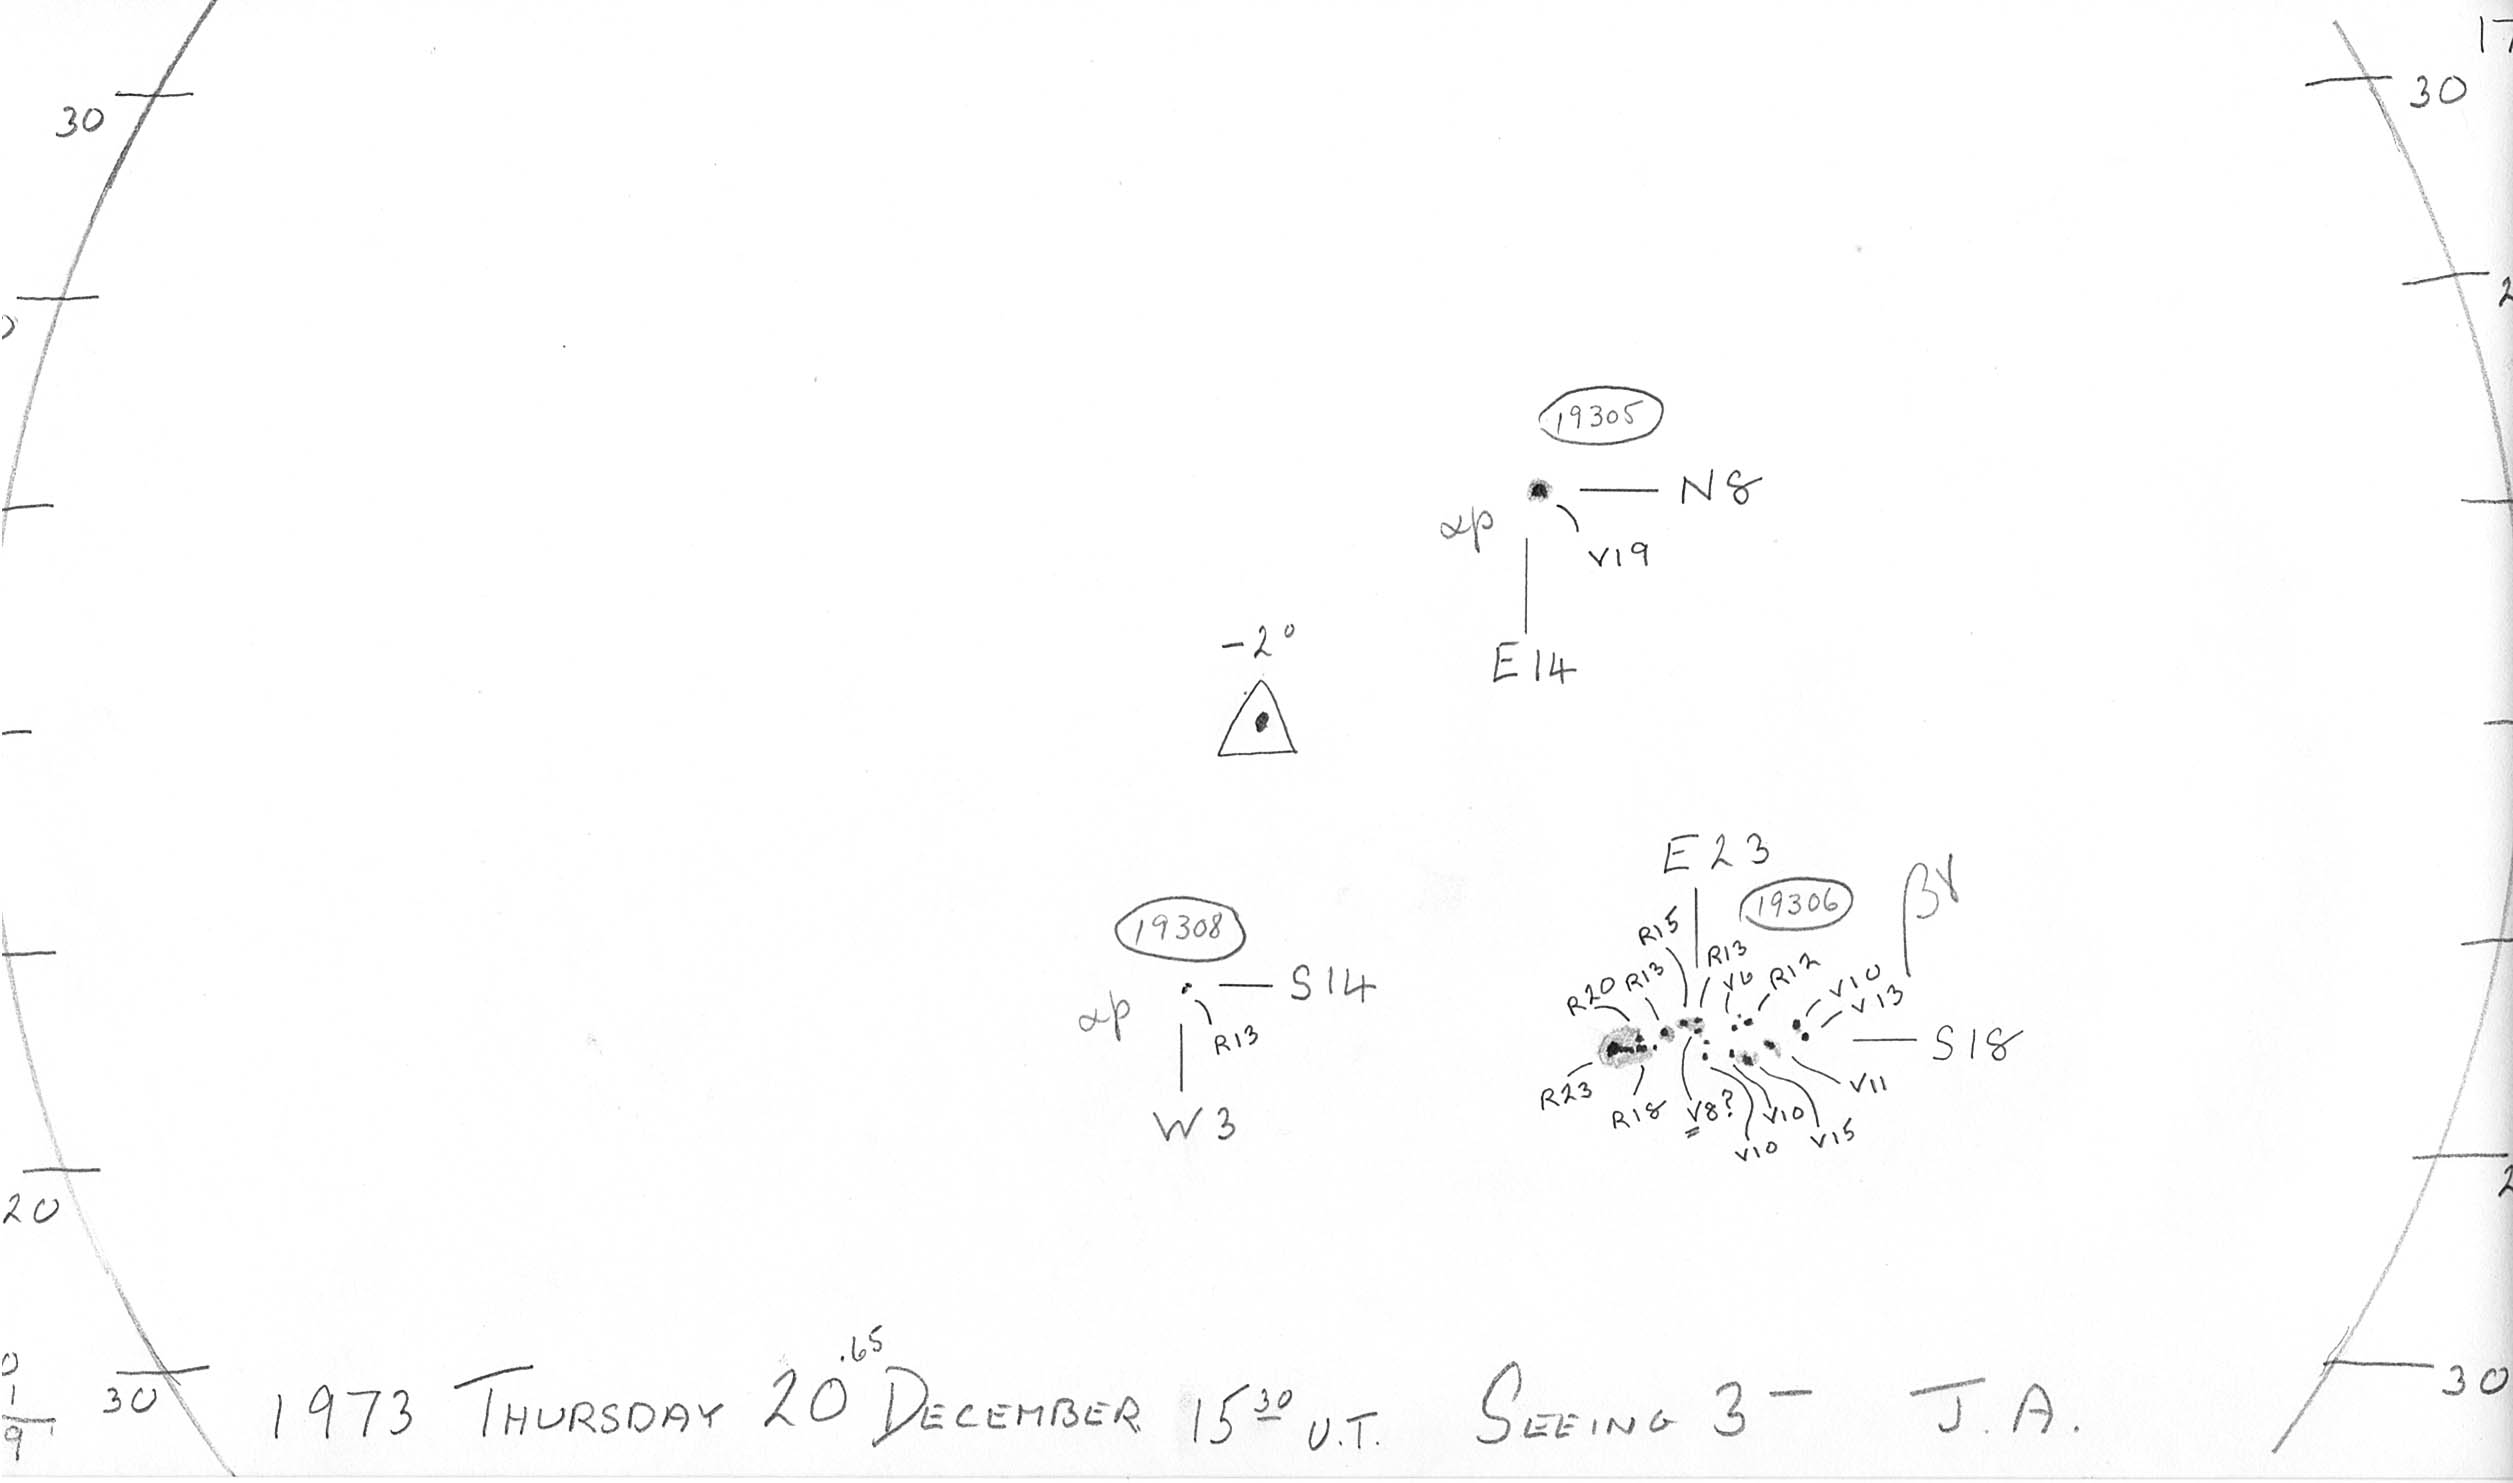 17
30
30
19305
N8
αp
V19
E14
-2°
E23
19306
βγ
R15
R13
R20
R13
V6
R12
V10
V13
19308
S14
αp
R13
W3
S18
R23
R18
V8?
V10
V10
V15
V11
20
30
30
1973 THURSDAY 20 .65 DECEMBER 15 30 U.T. SEEING 3- J.A.